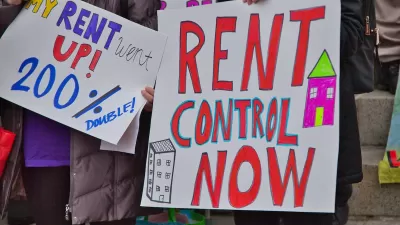 MY RENT went
UP!
200%
DOUBLE!
RENT
CONTROL
NOW